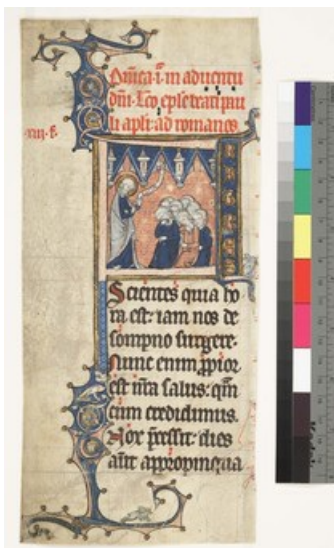 Dn̄ica .i. in aduentu
dn̄i. Lc̄o ep̄le beati pau
li apl̄i. ad romanos
Scientes quia ho
ra est: iam nos de
sompno surgere.
Nunc enim ꝓpior
est nr̄a salus: qm̄
cum credidimus.
Nox p̄cessit: dies
aut̄ appropinqua